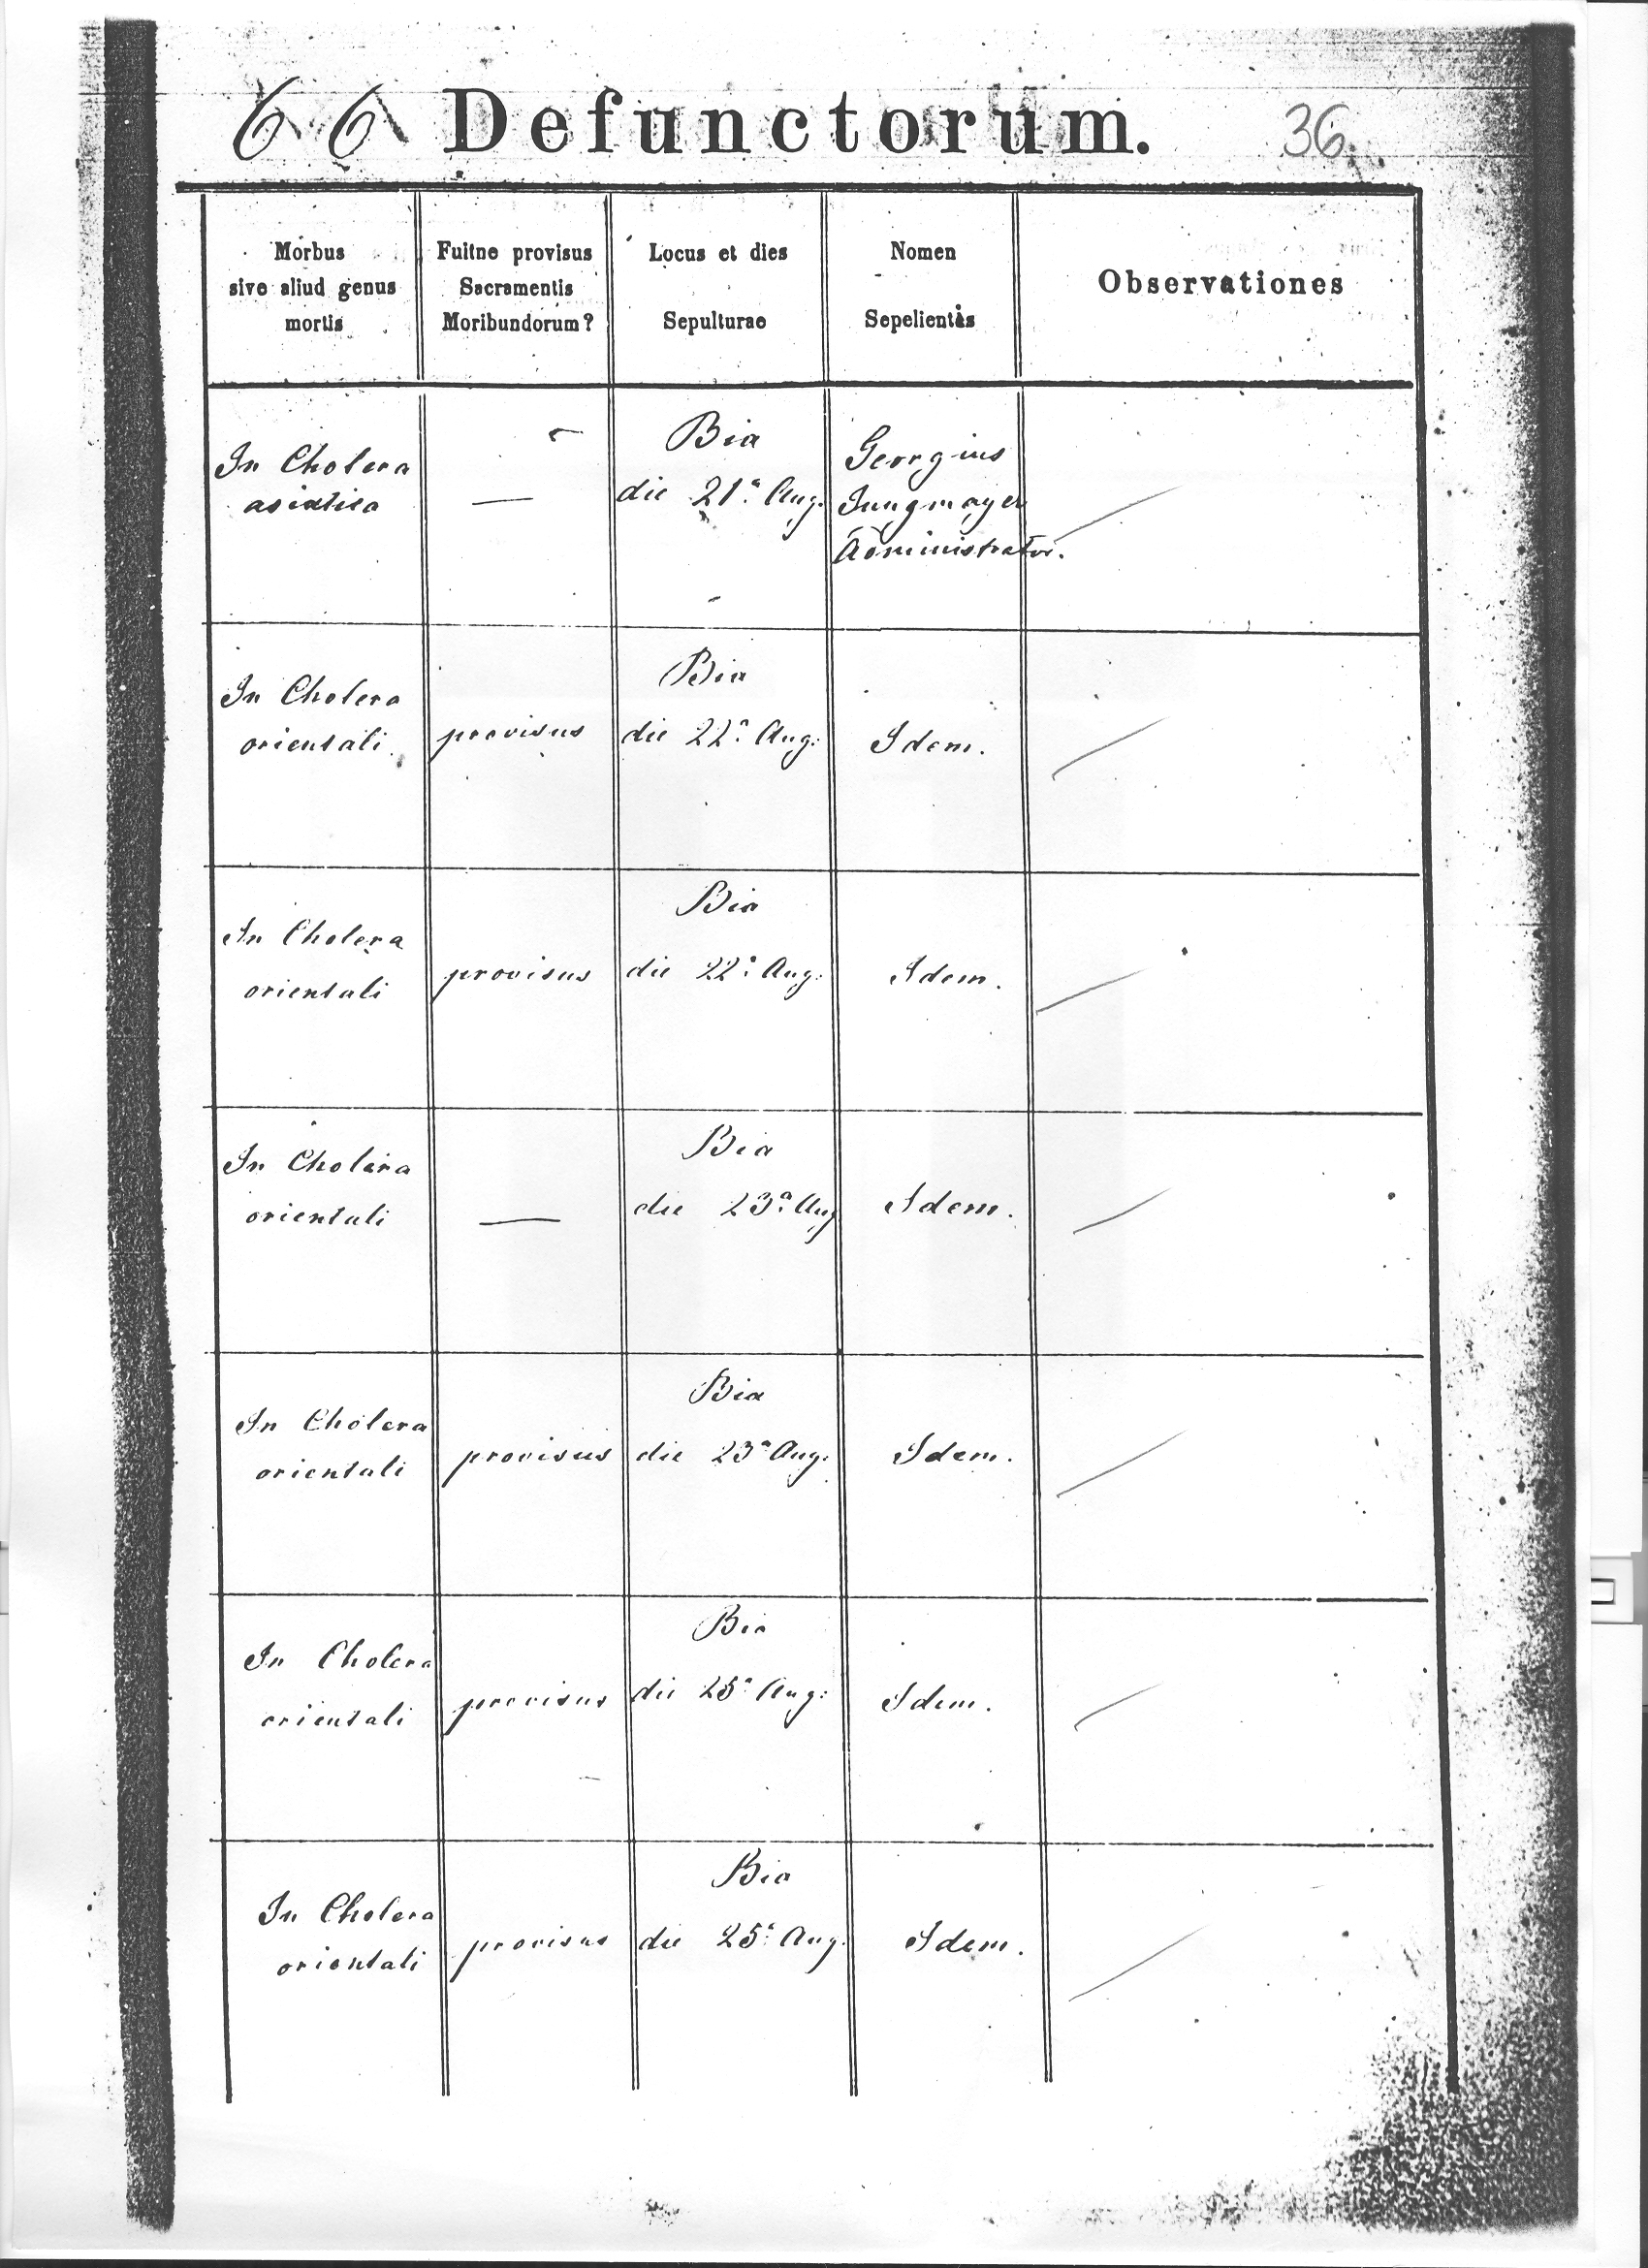 66 Defunctorum. 36
Morbus
sive aliud genus
mortis
Fuitne provisus
Sacramentis
Moribundorum?
Locus et dies
Sepulturae
Nomen
Sepelientis
Observationes
In Cholera
asiatica
—
Bia
die 21ª Aug.
Georgius
Jungmayer
Administrator.
In Cholera
orientali
provisus
Bia
die 22ª Aug:
Idem.
In Cholera
orientali
provisus
Bia
die 22ª Aug:
Idem.
In Cholera
orientali
—
Bia
die 23ª Aug
Idem.
In Cholera
orientali
provisus
Bia
die 23ª Aug.
Idem.
In Cholera
orientali
provisus
Bia
die 25ª Aug:
Idem.
In Cholera
orientali
provisus
Bia
die 25ª Aug.
Idem.